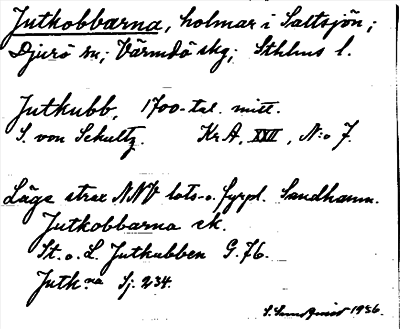 Jutkobbarna, holmar i Saltsjön;
Djurö sn; Värmdö skg; Sthlms l.
Jutkubb, 1700-tal. mitt.
S. von Schultz. Kr A, XXII, N:o 7.
Läge strax NNV lots- o. fyrpl. Sandhamn.
Jutkobbarna ek.
St. o. L. Jutkubben G. 76.
Jutk:na Sj. 234.
1936.